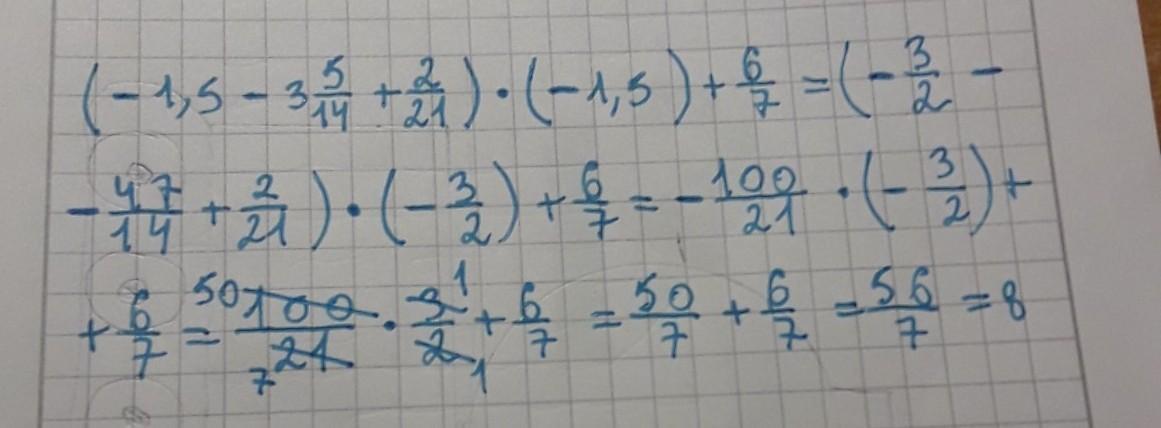 (-1,5 - 3 5/14 + 2/21) · (-1,5) + 6/7 = (- 3/2 -
- 47/14 + 2/21) · (- 3/2) + 6/7 = - 100/21 · (- 3/2) +
+ 6/7 = 50 100/21 7 · 3/2 1 1 + 6/7 = 50/7 + 6/7 = 56/7 = 8